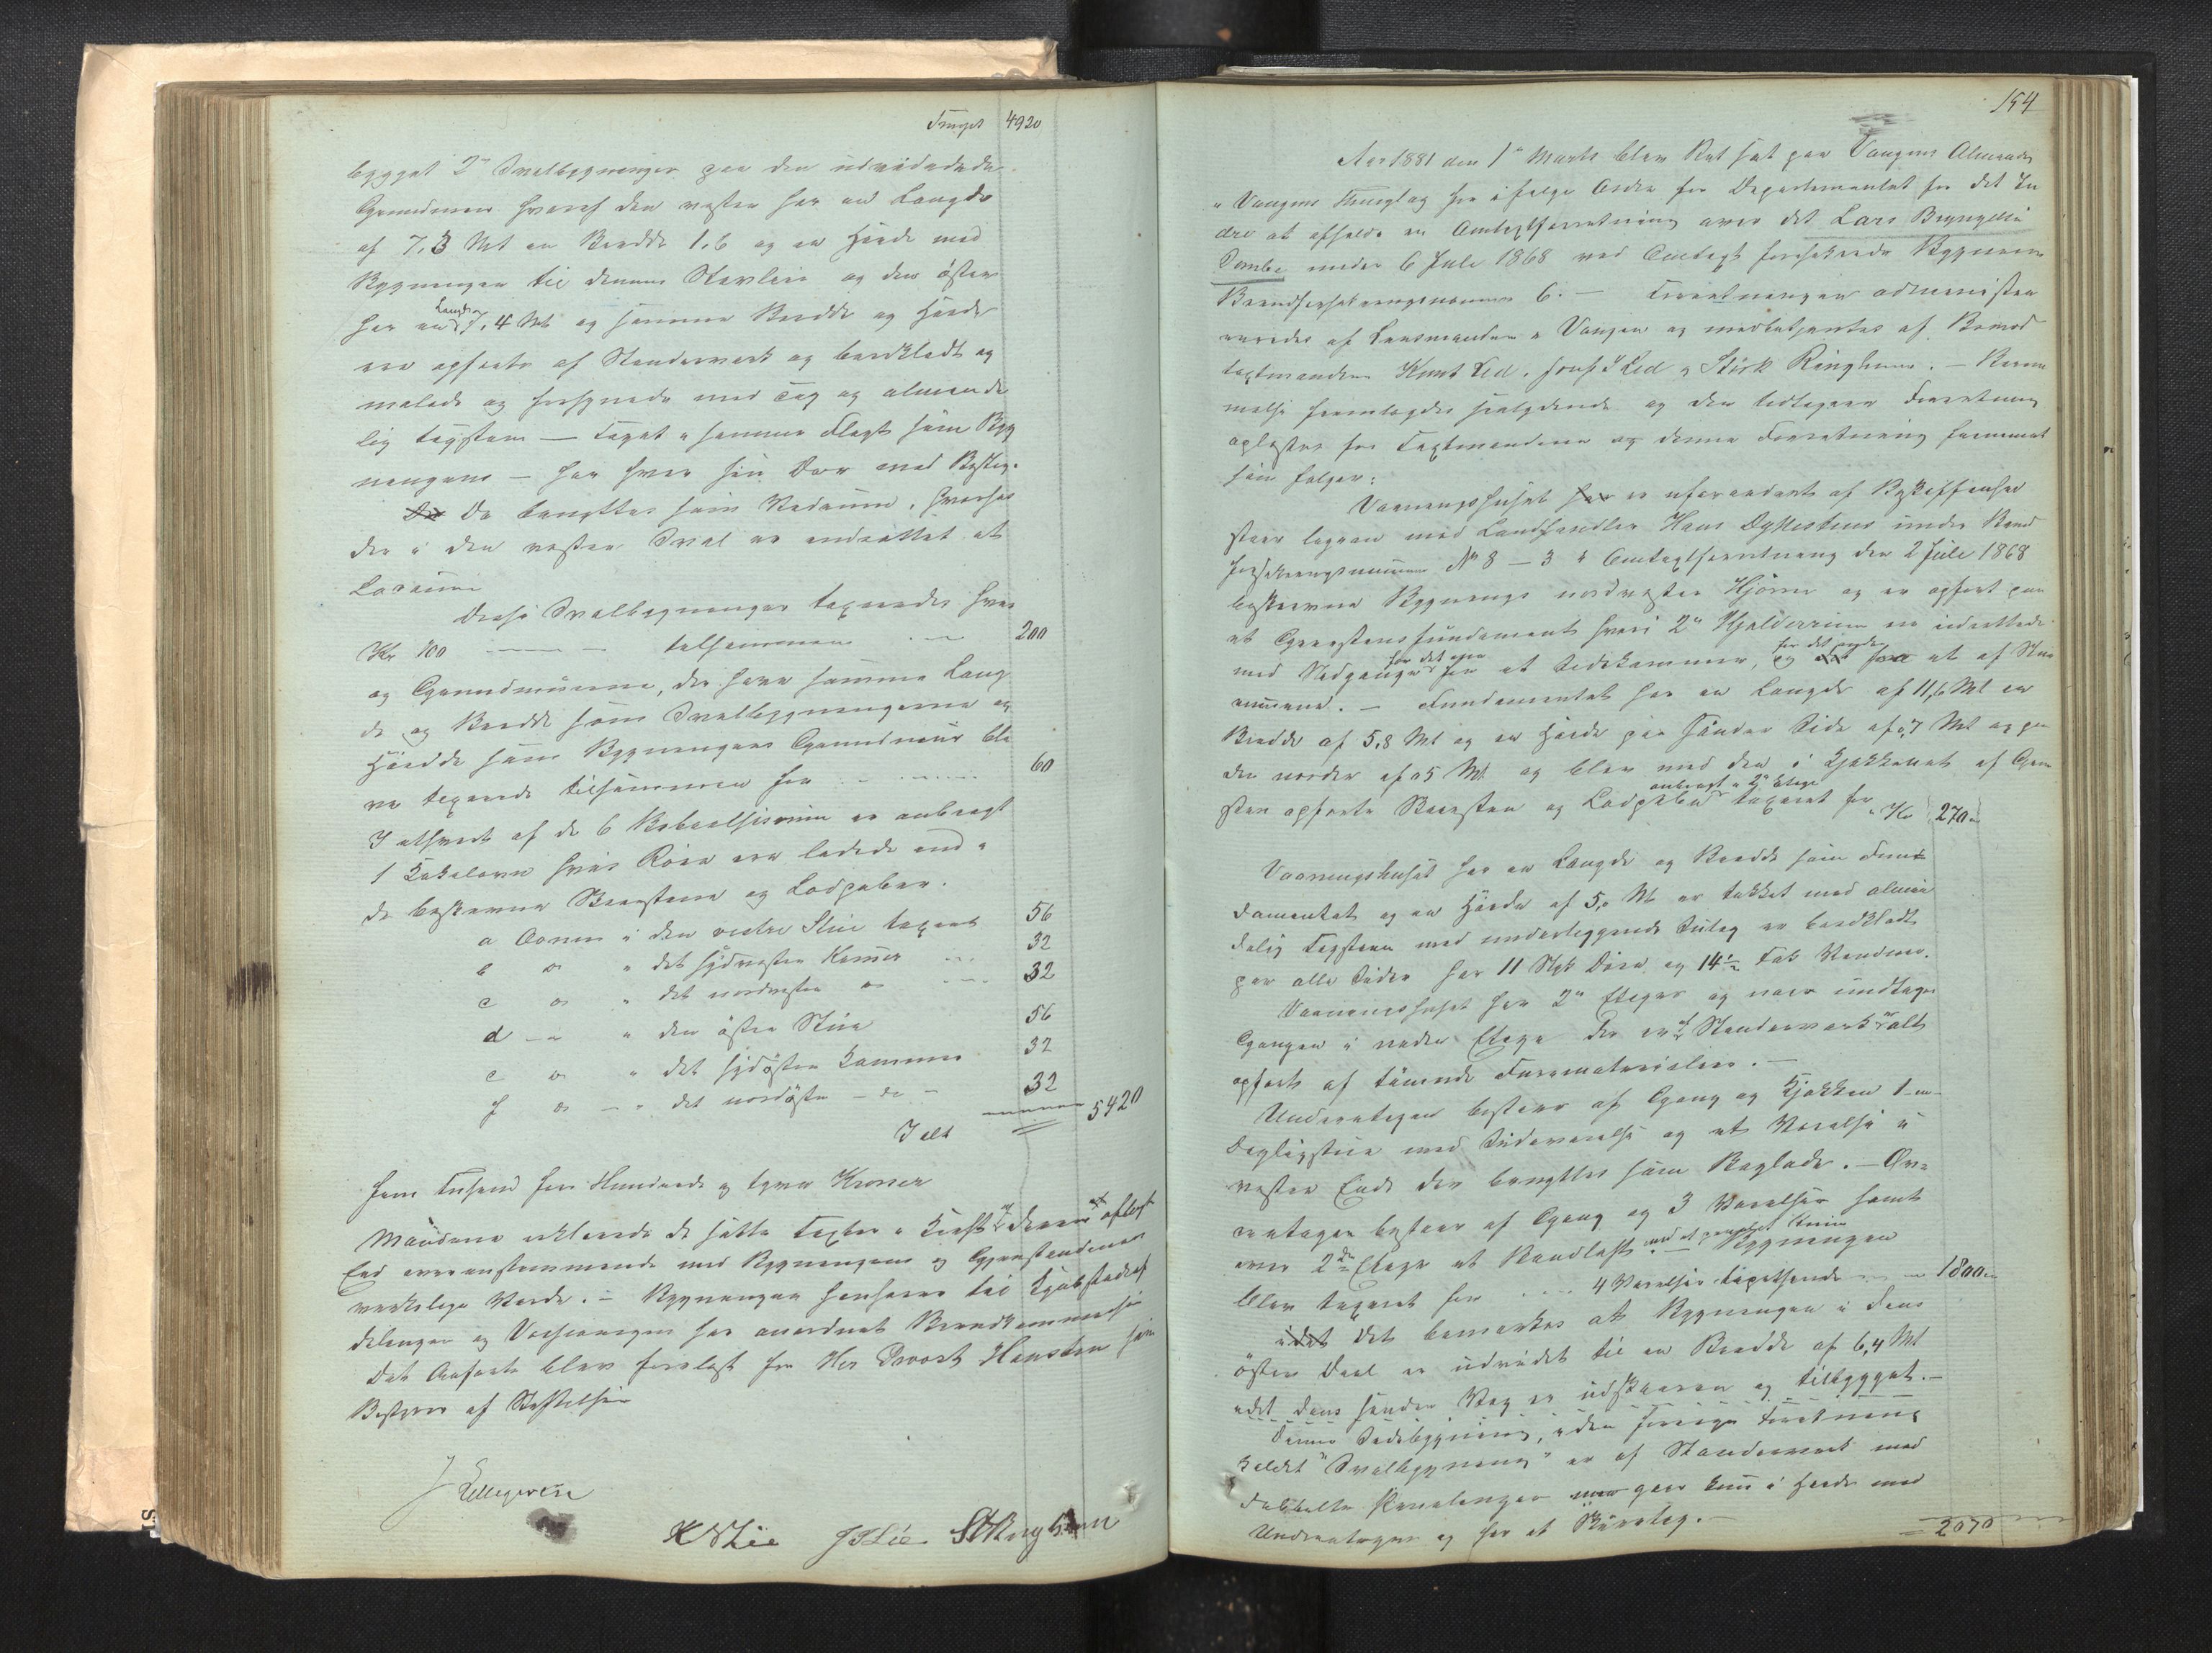 Transport 4920
bygget 2de Svalbygninger paa den udvidede
Grundmuur hvoraf den vestre har en Længde
af 7,3 Mt en Bredde 1,6 og en Høide med
Bygningen til dennes Stavleie og den østre
har en Længde 7,4 Mt og samme Bredde og Høide
ere opførte af Stenderverk og bordklædt og
malede og forsynede med Tag og alminde
lig Tagsten — Taget i samme Flugt som Byg
ningens — har hver sin Dør med Beslag.
De benyttes som Vedrum, hvorhos
der i den vestre Sval er indrettet et
Locrum
Disse Svalbygninger taxeredes hver
Kr 100 tilsammen 200
og Grundmurene, der have samme Læng
de og Bredde som Svalbygningerne og
Høide som Bygningens Grundmuur ble
ve taxerede tilsammen for 60
I ethvert af de 6 Beboelsesrum er anbragt
1 Kakelovn hvis Rør ere ledede ind i
de beskrevne Skorstene og Lodpiber.
a Ovnen i den vestre Stue taxeret 56
b do " det sydvestre Kammer 32
c do " det nordvestre do 32
d " " den østre Stue 56
e do " det sydøstre Kammer 32
f do " det nordøstre do 32
I alt 5420
Fem Tusend fire Hundrede og tyve Kroner
Mændene erklærede de satte Taxter i Kraft af deres aflagte
Eed overensstemmende med Bygningens og Gjenstandenes
virkelige Værdi. — Bygningen henføres til Kjøbstadaf
delingen og Vossevangen har anordnet Brandkommission
Det Anførte blev forelæst for Hr Provst Hansteen som
Bestyrer af Stiftelsen
J Lillegreven
K N Lie J S Lie S O Ringheim
154
Aar 1881 den 1ste Marts blev Ret sat paa Vangens Almenning
i Vangens Thinglag for ifølge Ordre fra Departementet for det In
dre at afholde en Omtaxtforretning over det Lars Brynjelsen
Dombe under 6 Juli 1868 ved Omtaxt forsikrede Bygninger
Brandforsikringsnummer 6. — Forretningen administre
redes af Lensmanden i Vangen og medbetjentes af Brand
taxtmændene Knut Lid, Josef S Lid og Størk Ringheim. — Rekvi
fremlagdes saalydende og den tidligere Forretning
oplæstes for Taxtmændene og denne Forretning fremmet
som følger:
Vaaningshuset er uforandret af Beskaffenhed
staar sammen med Landhandler Hans Dykestens under Brand
forsikringsnummer No 8 – 3 i Omtaxtforretning den 2 Juli 1868
beskrevne Bygnings nordvestre Hjørne og er opført paa
et Graastensfundament hvori 2de Kjælderrum ere indrettede
med Nedgange for det ene fra et Sidekammer, og for det andet fra et af Stue
rummene. — Fundamentet har en Længde af 11,6 Mt en
Bredde af 5,8 Mt og en Høide paa søndre Side af 0,7 Mt og paa
den nordre af 0,5 Mt og blev med den i Kjøkkenet af Graa
sten opførte Skorsten og Lodpibe anbragt i 2de Etage taxeret for Kr 270
Vaaningshuset har en Længde og Bredde som Fun
damentet og en Høide af 5,0 Mt er tækket med almin
delig Tagsten med underliggende Sutag er bordklædt
paa alle Sider har 11 Styk Døre og 14½ Fag Vinduer.
Vaaningshuset har 2de Etager og naar undtages
Gangen i nedre Etage der er af Stenderverk er alt
opført af tømrede Furumaterialier. —
Underetagen bestaar af Gang og Kjøkken 1
Dagligstue med Sideværelse og et Værelse i
vestre Ende der benyttes som Baglade. — Øv
reetagen bestaar af Gang og 3 Værelser samt
over 2den Etage et Rundloft med et panelet Rum Bygningen
blev taxeret for 4 Værelser tapetserede 1800
Det bemærkes at Bygningen i dens
østre Deel er udvidet til en Bredde af 6,4 Mt
idet dens søndre Væg er udskaaren og tilbygget. —
Denne Sidebygning, i den forrige Forretning
kaldet "Svalbygning" er af Stenderverk med
dobbelte Panelinger gaar kun i Høide med
Underetagen og har et Skraatag. —
2070